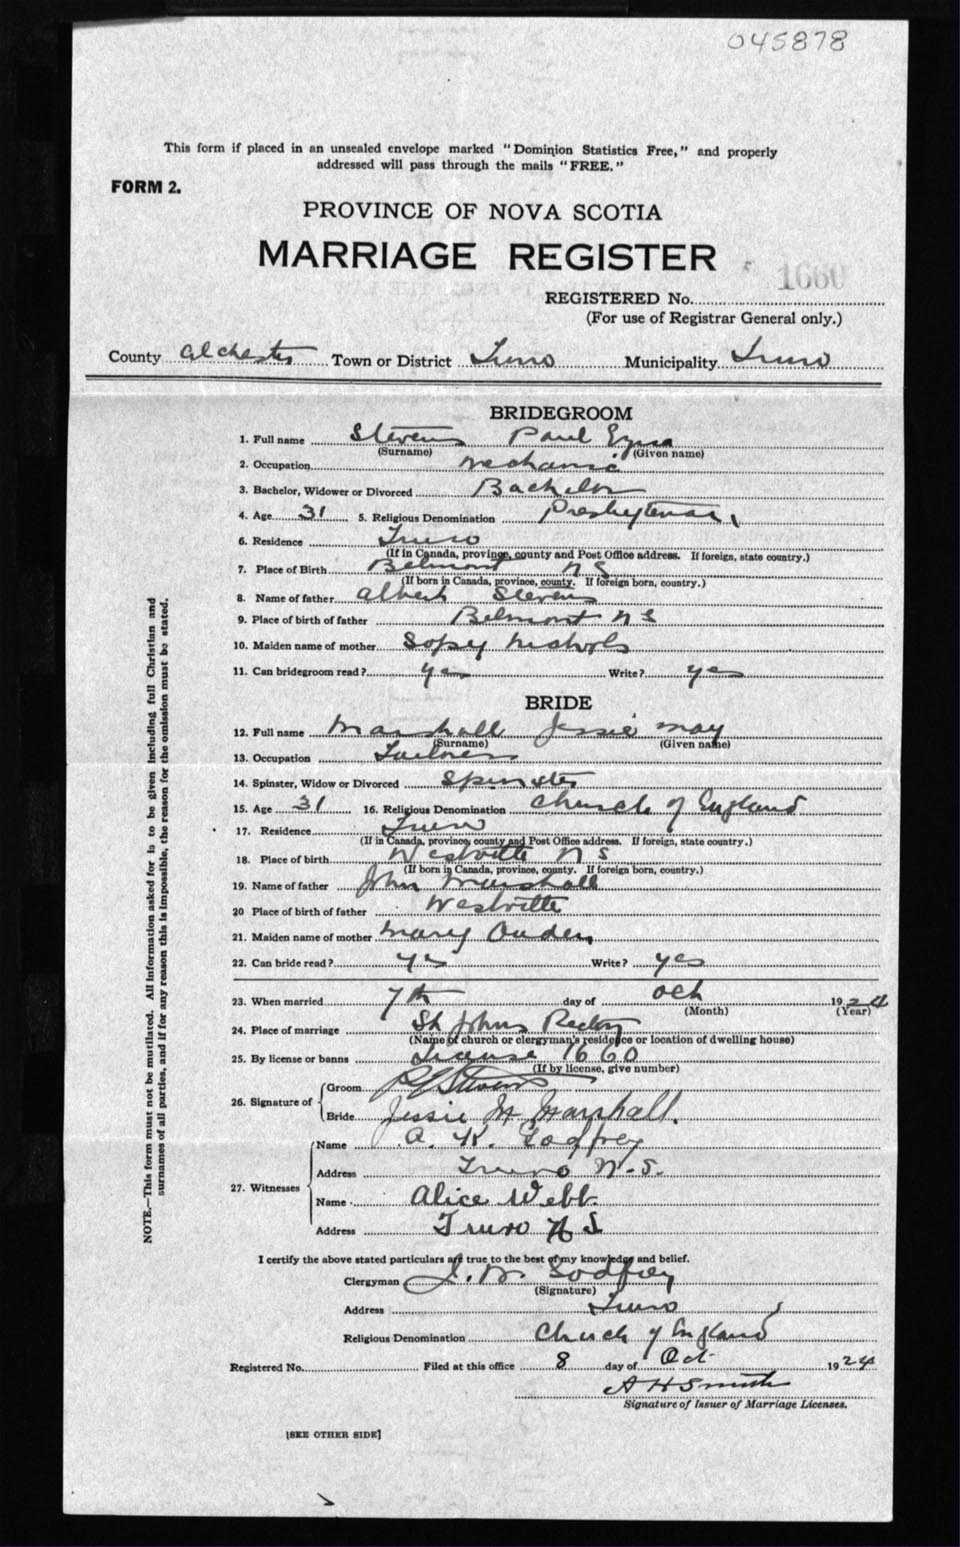 045878
This form if placed in an unsealed envelope marked "Dominion Statistics Free," and properly
addressed will pass through the mails "FREE."
FORM 2.
PROVINCE OF NOVA SCOTIA
MARRIAGE REGISTER
1660
REGISTERED No.
(For use of Registrar General only.)
County Colchester Town or District Truro Municipality Truro
BRIDEGROOM
1. Full name Stevens Paul
(Surname) (Given name)
2. Occupation Mechanic
3. Bachelor, Widower or Divorced Bachelor
4. Age 31 5. Religious Denomination Presbyterian
6. Residence Truro
(If in Canada, province, county and Post Office address. If foreign, state country.)
7. Place of Birth Belmont N S
(If born in Canada, province, county. If foreign born, country.)
8. Name of father Albert Stevens
9. Place of birth of father Belmont N S
10. Maiden name of mother Sopey Nichols
11. Can bridegroom read? yes Write? yes
BRIDE
12. Full name Marshall Jessie May
(Surname) (Given name)
13. Occupation Tailoress
14. Spinster, Widow or Divorced Spinster
15. Age 31 16. Religious Denomination Church of England
17. Residence Truro
(If in Canada, province, county and Post Office address. If foreign, state country.)
18. Place of birth Westville N S
(If born in Canada, province, county. If foreign born, country.)
19. Name of father John Marshall
20 Place of birth of father Westville
21. Maiden name of mother Mary
22. Can bride read? yes Write? yes
23. When married 7th day of Oct 1924
(Month) (Year)
24. Place of marriage St Johns Rectory
(Name of church or clergyman's residence or location of dwelling house)
25. By license or banns License 1660
(If by license, give number)
26. Signature of
Groom P E Stevens
Bride Jessie M Marshall.
27. Witnesses
Name A. K. Godfrey
Address Truro N.S.
Name Alice Webb
Address Truro N S
I certify the above stated particulars are true to the best of my knowledge and belief.
Clergyman J. M. Godfrey
(Signature)
Address Truro
Religious Denomination Church of England
Registered No. Filed at this office 8 day of Oct 1924
A H Smith
Signature of Issuer of Marriage Licenses.
[SEE OTHER SIDE]
NOTE.—This form must not be mutilated. All information asked for is to be given including full Christian and
surnames of all parties, and if for any reason this is impossible, the reason for the omission must be stated.